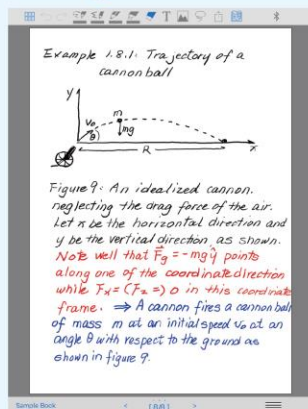 Example 1.8.1: Trajectory of a
cannon ball
y
m
v₀
θ
mg
R
x
Figure 9: An idealized cannon,
neglecting the drag force of the air.
Let x be the horizontal direction and
y be the vertical direction, as shown.
Note well that F⃗g = -mgŷ points
along one of the coordinate direction
while Fx = (Fz =) 0 in this coordinate
frame. ⇒ A cannon fires a cannon ball
of mass m at an initial speed v₀ at an
angle θ with respect to the ground as
shown in figure 9.
Sample Book